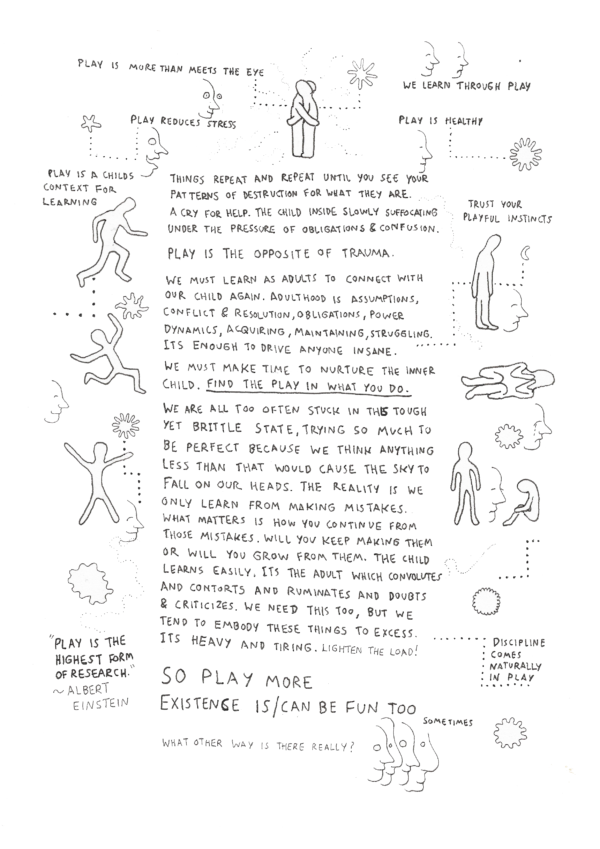 PLAY IS MORE THAN MEETS THE EYE
WE LEARN THROUGH PLAY
PLAY REDUCES STRESS
PLAY IS HEALTHY
PLAY IS A CHILDS
CONTEXT FOR
LEARNING
TRUST YOUR
PLAYFUL INSTINCTS
THINGS REPEAT AND REPEAT UNTIL YOU SEE YOUR
PATTERNS OF DESTRUCTION FOR WHAT THEY ARE.
A CRY FOR HELP. THE CHILD INSIDE SLOWLY SUFFOCATING
UNDER THE PRESSURE OF OBLIGATIONS & CONFUSION.
PLAY IS THE OPPOSITE OF TRAUMA.
WE MUST LEARN AS ADULTS TO CONNECT WITH
OUR CHILD AGAIN. ADULTHOOD IS ASSUMPTIONS,
CONFLICT & RESOLUTION, OBLIGATIONS, POWER
DYNAMICS, ACQUIRING, MAINTAINING, STRUGGLING.
ITS ENOUGH TO DRIVE ANYONE INSANE.
WE MUST MAKE TIME TO NURTURE THE INNER
CHILD. FIND THE PLAY IN WHAT YOU DO.
WE ARE ALL TOO OFTEN STUCK IN THIS TOUGH
YET BRITTLE STATE, TRYING SO MUCH TO
BE PERFECT BECAUSE WE THINK ANYTHING
LESS THAN THAT WOULD CAUSE THE SKY TO
FALL ON OUR HEADS. THE REALITY IS WE
ONLY LEARN FROM MAKING MISTAKES.
WHAT MATTERS IS HOW YOU CONTINUE FROM
THOSE MISTAKES. WILL YOU KEEP MAKING THEM
OR WILL YOU GROW FROM THEM. THE CHILD
LEARNS EASILY. ITS THE ADULT WHICH CONVOLUTES
AND CONTORTS AND RUMINATES AND DOUBTS
& CRITICIZES. WE NEED THIS TOO, BUT WE
TEND TO EMBODY THESE THINGS TO EXCESS.
ITS HEAVY AND TIRING. LIGHTEN THE LOAD!
"PLAY IS THE
HIGHEST FORM
OF RESEARCH."
~ ALBERT
EINSTEIN
DISCIPLINE
COMES
NATURALLY
IN PLAY
SO PLAY MORE
EXISTENCE IS/CAN BE FUN TOO
SOMETIMES
WHAT OTHER WAY IS THERE REALLY?